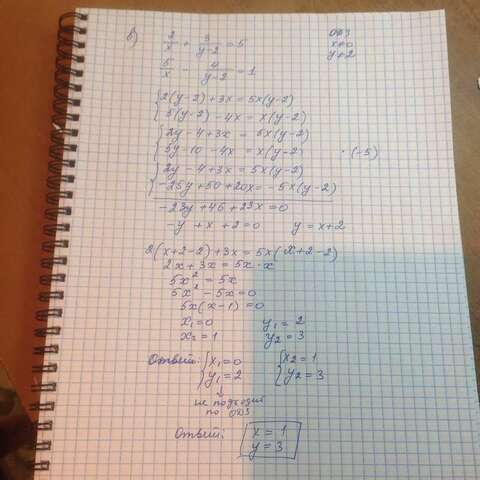 в) 2/x + 3/(y-2) = 5 ОДЗ
x≠0
5/x - 4/(y-2) = 1 y≠2
{2(y-2)+3x = 5x(y-2)
5(y-2)-4x = x(y-2)
{2y-4+3x = 5x(y-2)
5y-10-4x = x(y-2 ·(-5)
{2y-4+3x = 5x(y-2)
-25y+50+20x = -5x(y-2)
-23y+46+23x=0
-y+x+2=0 y=x+2
2(x+2-2)+3x=5x(x+2-2)
2x+3x=5x·x
5x²=5x
5x²-5x=0
5x(x-1)=0
x₁=0 y₁=2
x₂=1 y₂=3
Ответ: {x₁=0 {x₂=1
y₁=2 y₂=3
↓
не подходит
по ОДЗ
Ответ: x=1
y=3